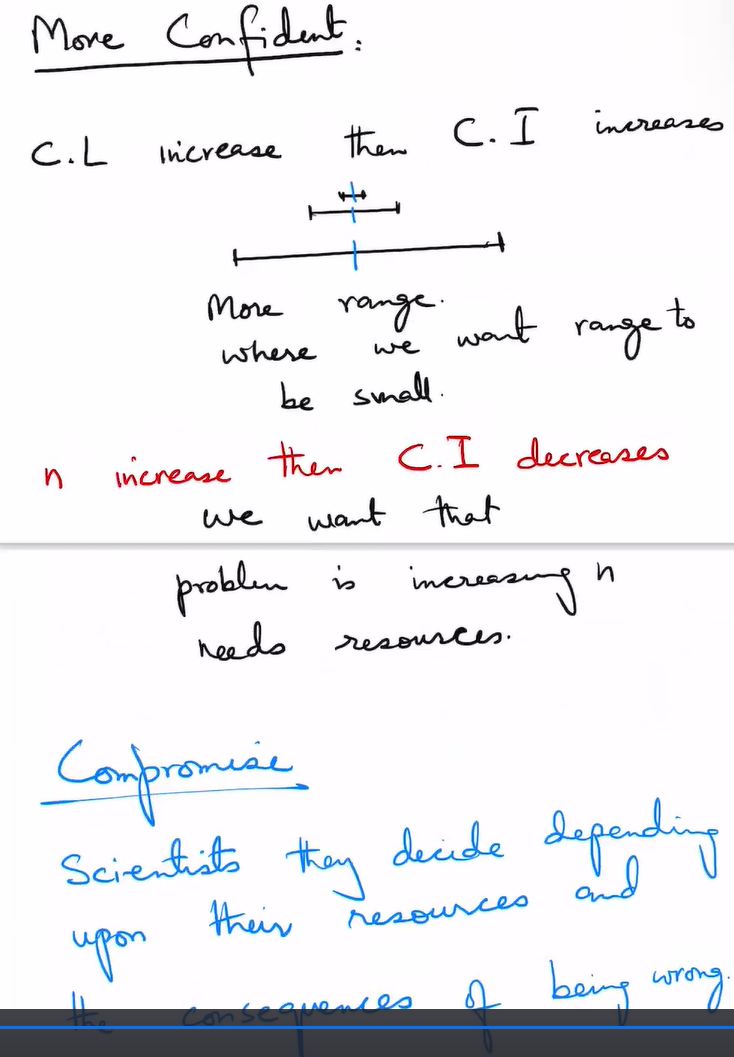 More Confident:
C.L increase then C.I increases
More range.
where we want range to
be small.
n increase then C.I decreases
we want that
problem is increasing n
needs resources.
Compromise
Scientists they decide depending
upon their resources and
the consequences of being wrong.